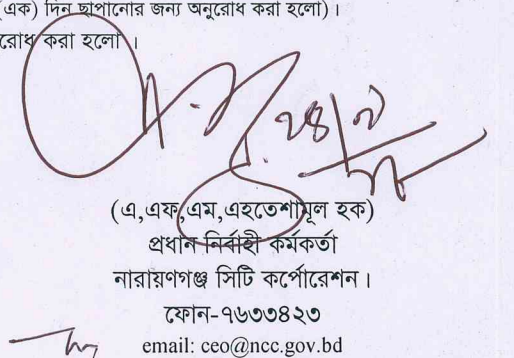 (এক) দিন ছাপানোর জন্য অনুরোধ করা হলো)।
রোধ করা হলো ।
২৪|৭
(এ,এফ,এম,এহতেশামূল হক)
প্রধান নির্বাহী কর্মকর্তা
নারায়ণগঞ্জ সিটি কর্পোরেশন।
ফোন-৭৬৩৩৪২৩
email: ceo@ncc.gov.bd